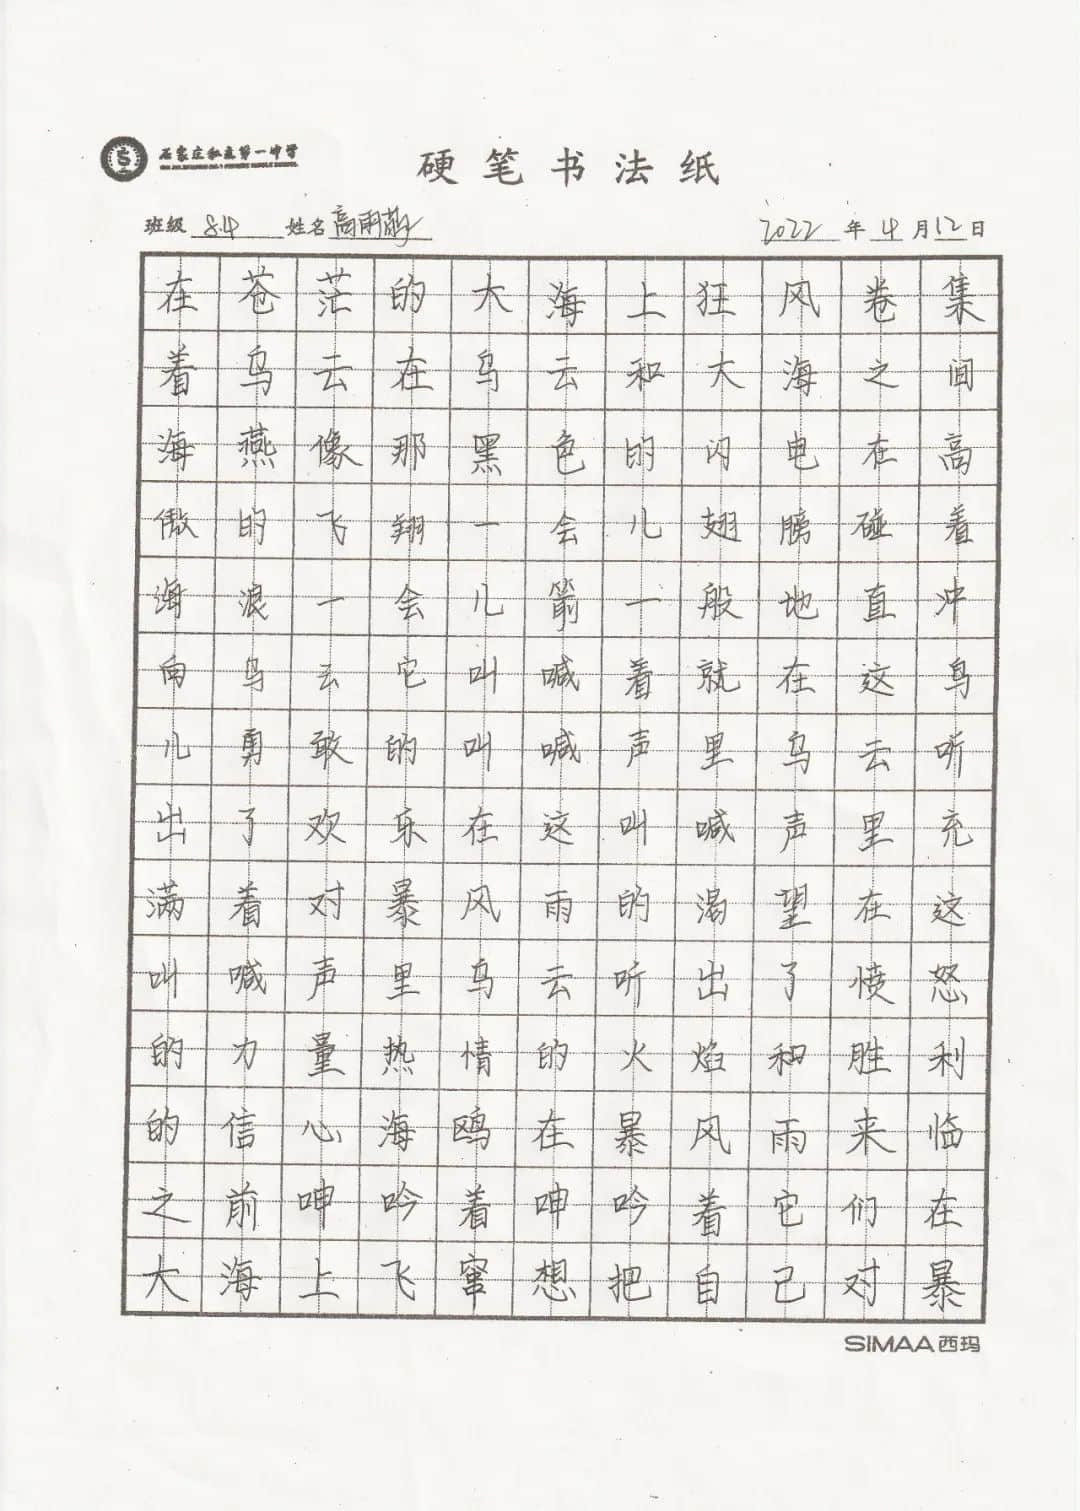 石家庄私立第一中学
硬笔书法纸
班级 8.4 姓名 高雨萌 2022 年 4 月 12 日
在苍茫的大海上狂风卷集
着乌云在乌云和大海之间
海燕像那黑色的闪电在高
傲的飞翔一会儿翅膀碰着
海浪一会儿箭一般地直冲
向乌云它叫喊着就在这鸟
儿勇敢的叫喊声里乌云听
出了欢乐在这叫喊声里充
满着对暴风雨的渴望在这
叫喊声里乌云听出了愤怒
的力量热情的火焰和胜利
的信心海鸥在暴风雨来临
之前呻吟着呻吟着它们在
大海上飞窜想把自己对暴
SIMAA西玛